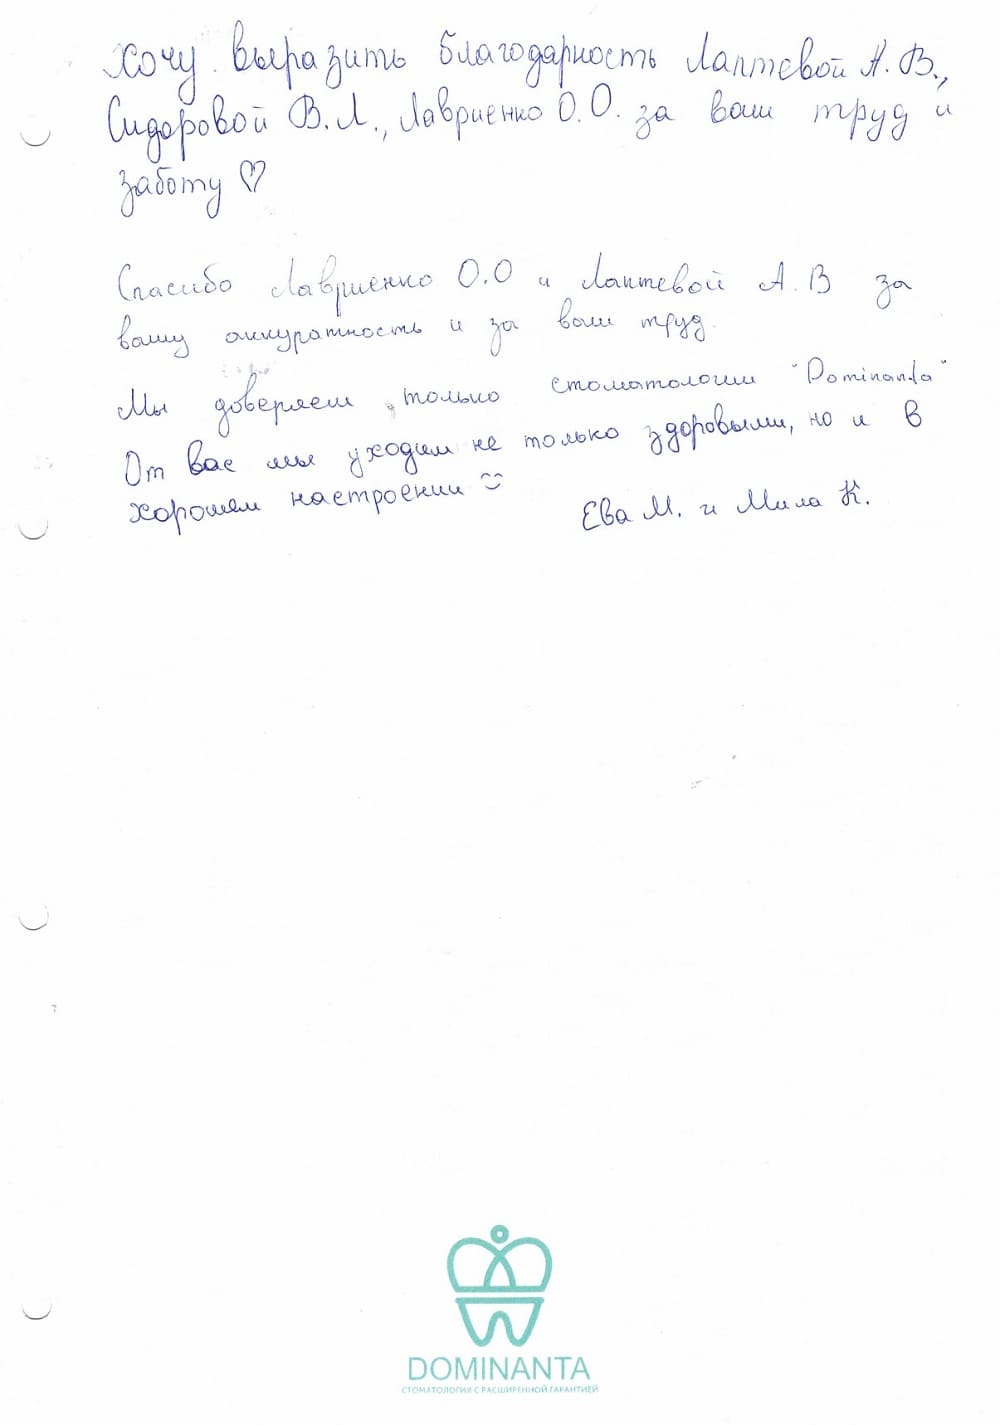 Хочу выразить благодарность Лаптевой А. В.,
Сидоровой В. Л., Лавриенко О.О. за ваш труд и
заботу ♡
Спасибо Лавриенко О.О и Лаптевой А.В за
вашу аккуратность и за ваш труд.
Мы доверяем только стоматологии "Dominanta"
От вас мы уходим не только здоровыми, но и в
хорошем настроении
Ева М. и Мила К.
DOMINANTA
СТОМАТОЛОГИЯ С РАСШИРЕННОЙ ГАРАНТИЕЙ